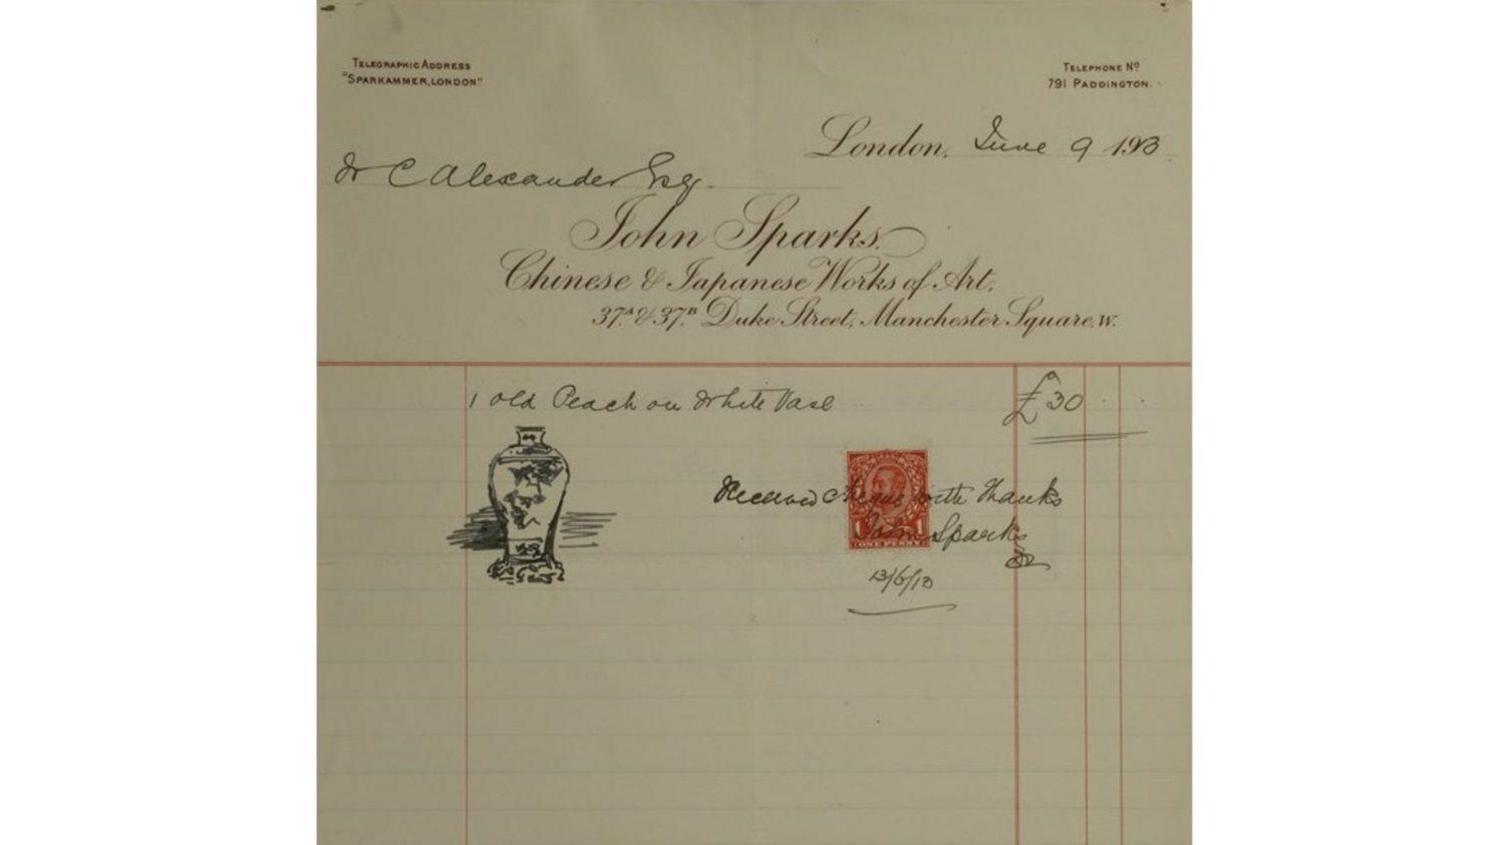 TELEGRAPHIC ADDRESS
"SPARKAMMER, LONDON"
TELEPHONE Nº
791 PADDINGTON.
London, June 9 1913
W C Alexander Esq.
John Sparks.
Chinese & Japanese Works of Art.
37A & 37B Duke Street, Manchester Square, W.
1 old Peach on White Vase £30 . .
Received Cheque with Thanks
John Sparks
13/6/13
1 1
ONE PENNY